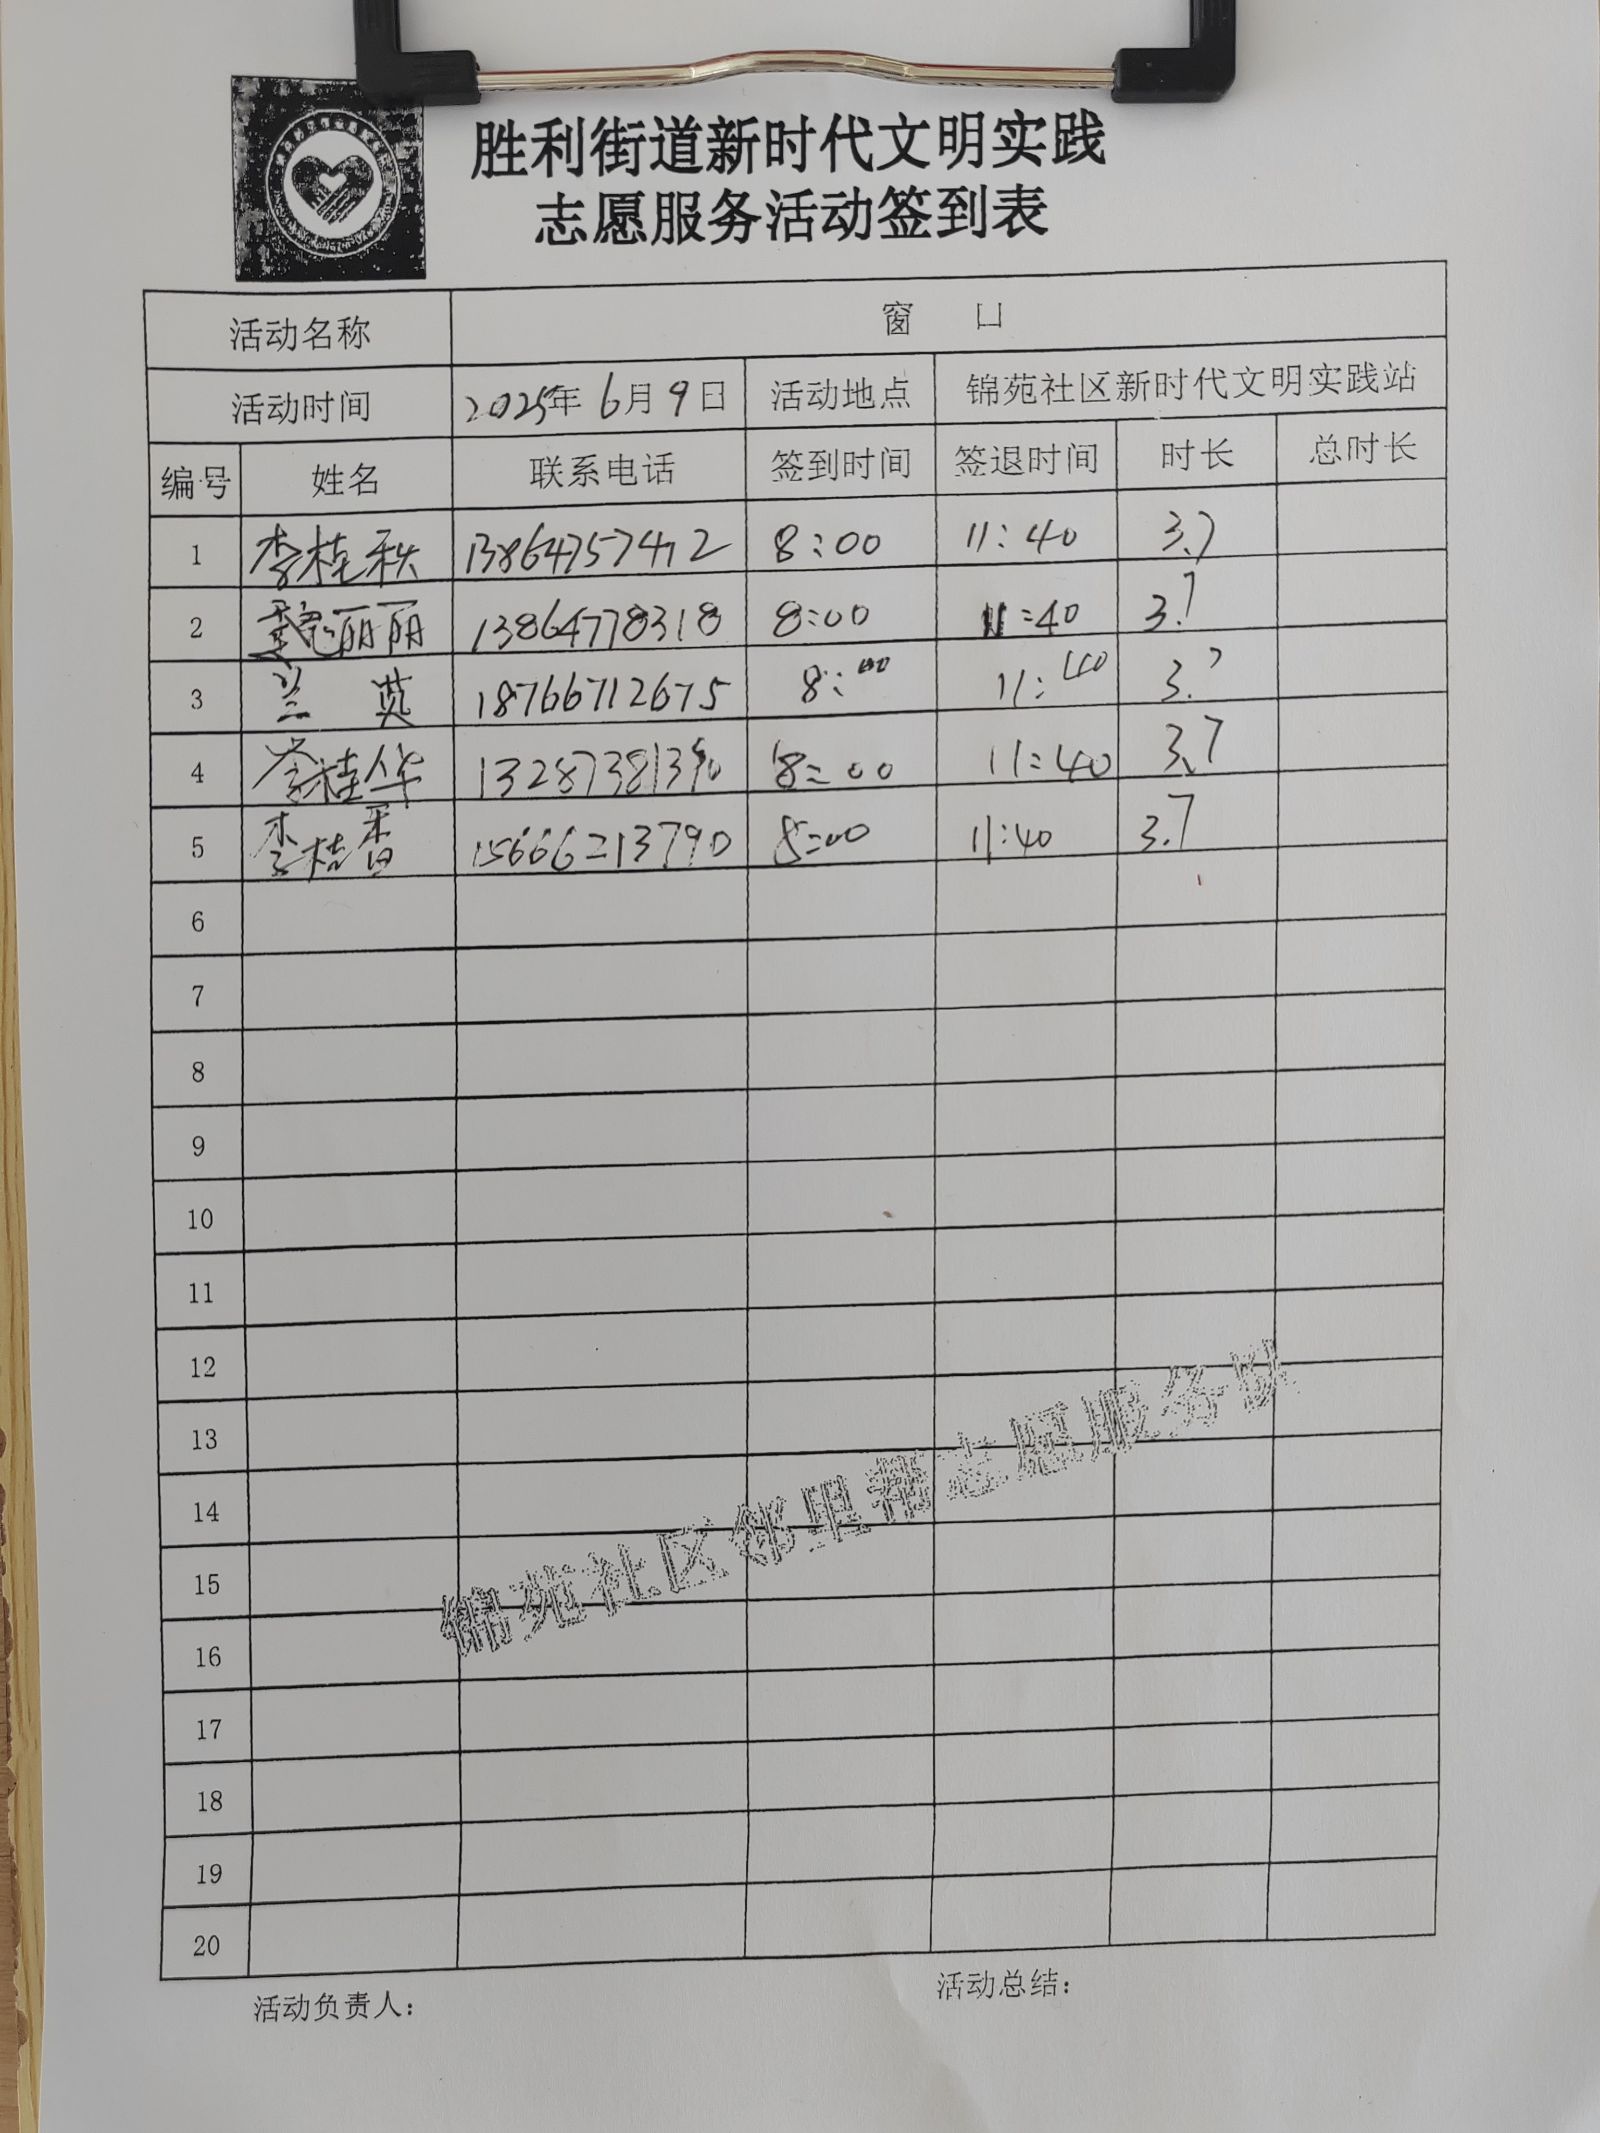 胜利街道新时代文明实践
志愿服务活动签到表
活动名称 窗 口
活动时间 2025年 6月 9日 活动地点 锦苑社区新时代文明实践站
编号 姓名 联系电话 签到时间 签退时间 时长 总时长
1 李桂秋 13864757472 8:00 11:40 3.7
2 魏丽丽 13864778318 8:00 11:40 3.7
3 兰英 18766712675 8:00 11:40 3.7
4 李桂华 13287381390 8:00 11:40 3.7
5 李桂香 15666213790 8:00 11:40 3.7
6
7
8
9
10
11
12
13
14
15
16
17
18
19
20
锦苑社区邻里帮志愿服务队
活动负责人: 活动总结: